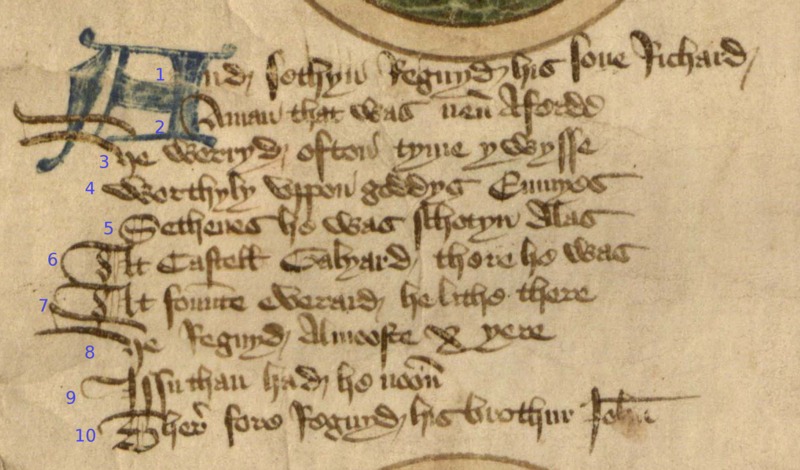 And sothyn Regnyd his sone Richard
Aman that was neu Aferdd
he werryd ofton tyme ywysse
worthyly vppon goddys Enmyes
Sethenes he was schotyn Alas
At Castell Galyard there he was
At founte everard he lithe there
he Regnyd Almooste x yere
Issu than had he noon
Ther fore Regnyd his brothur John